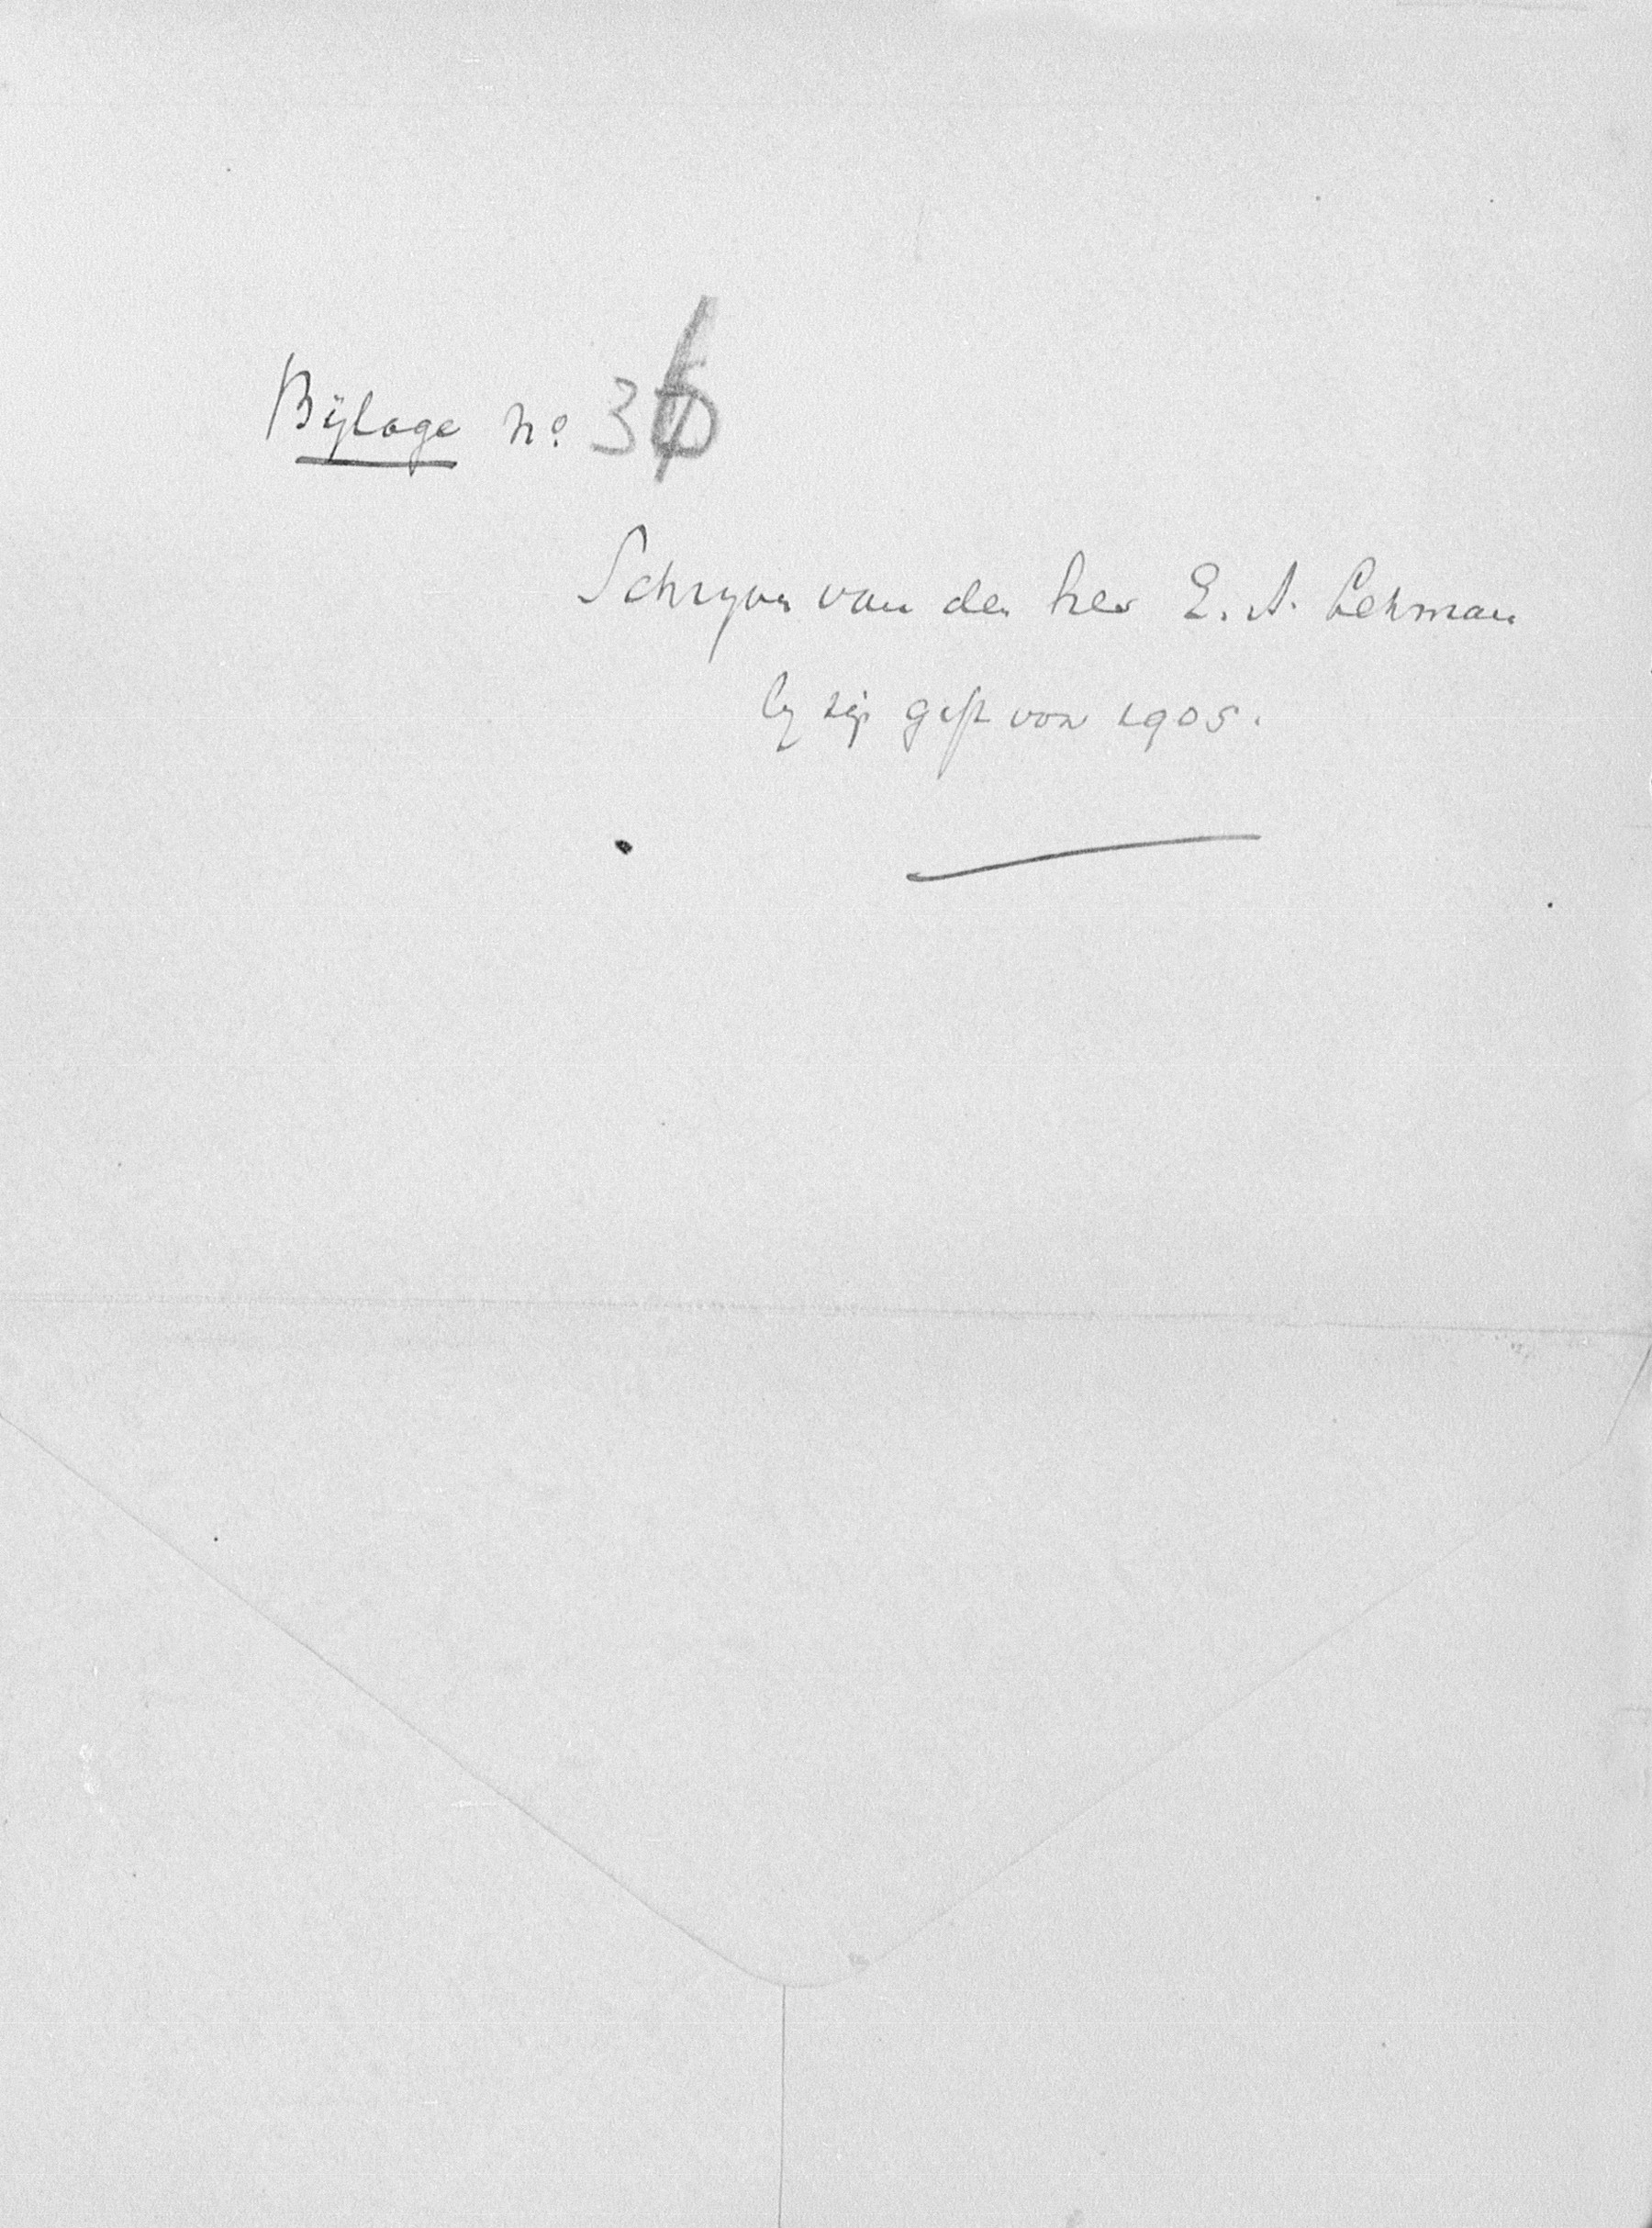 Bijlage no. 36
Schryven van den heer E. A. Lehman
by zijn gift van 1905.